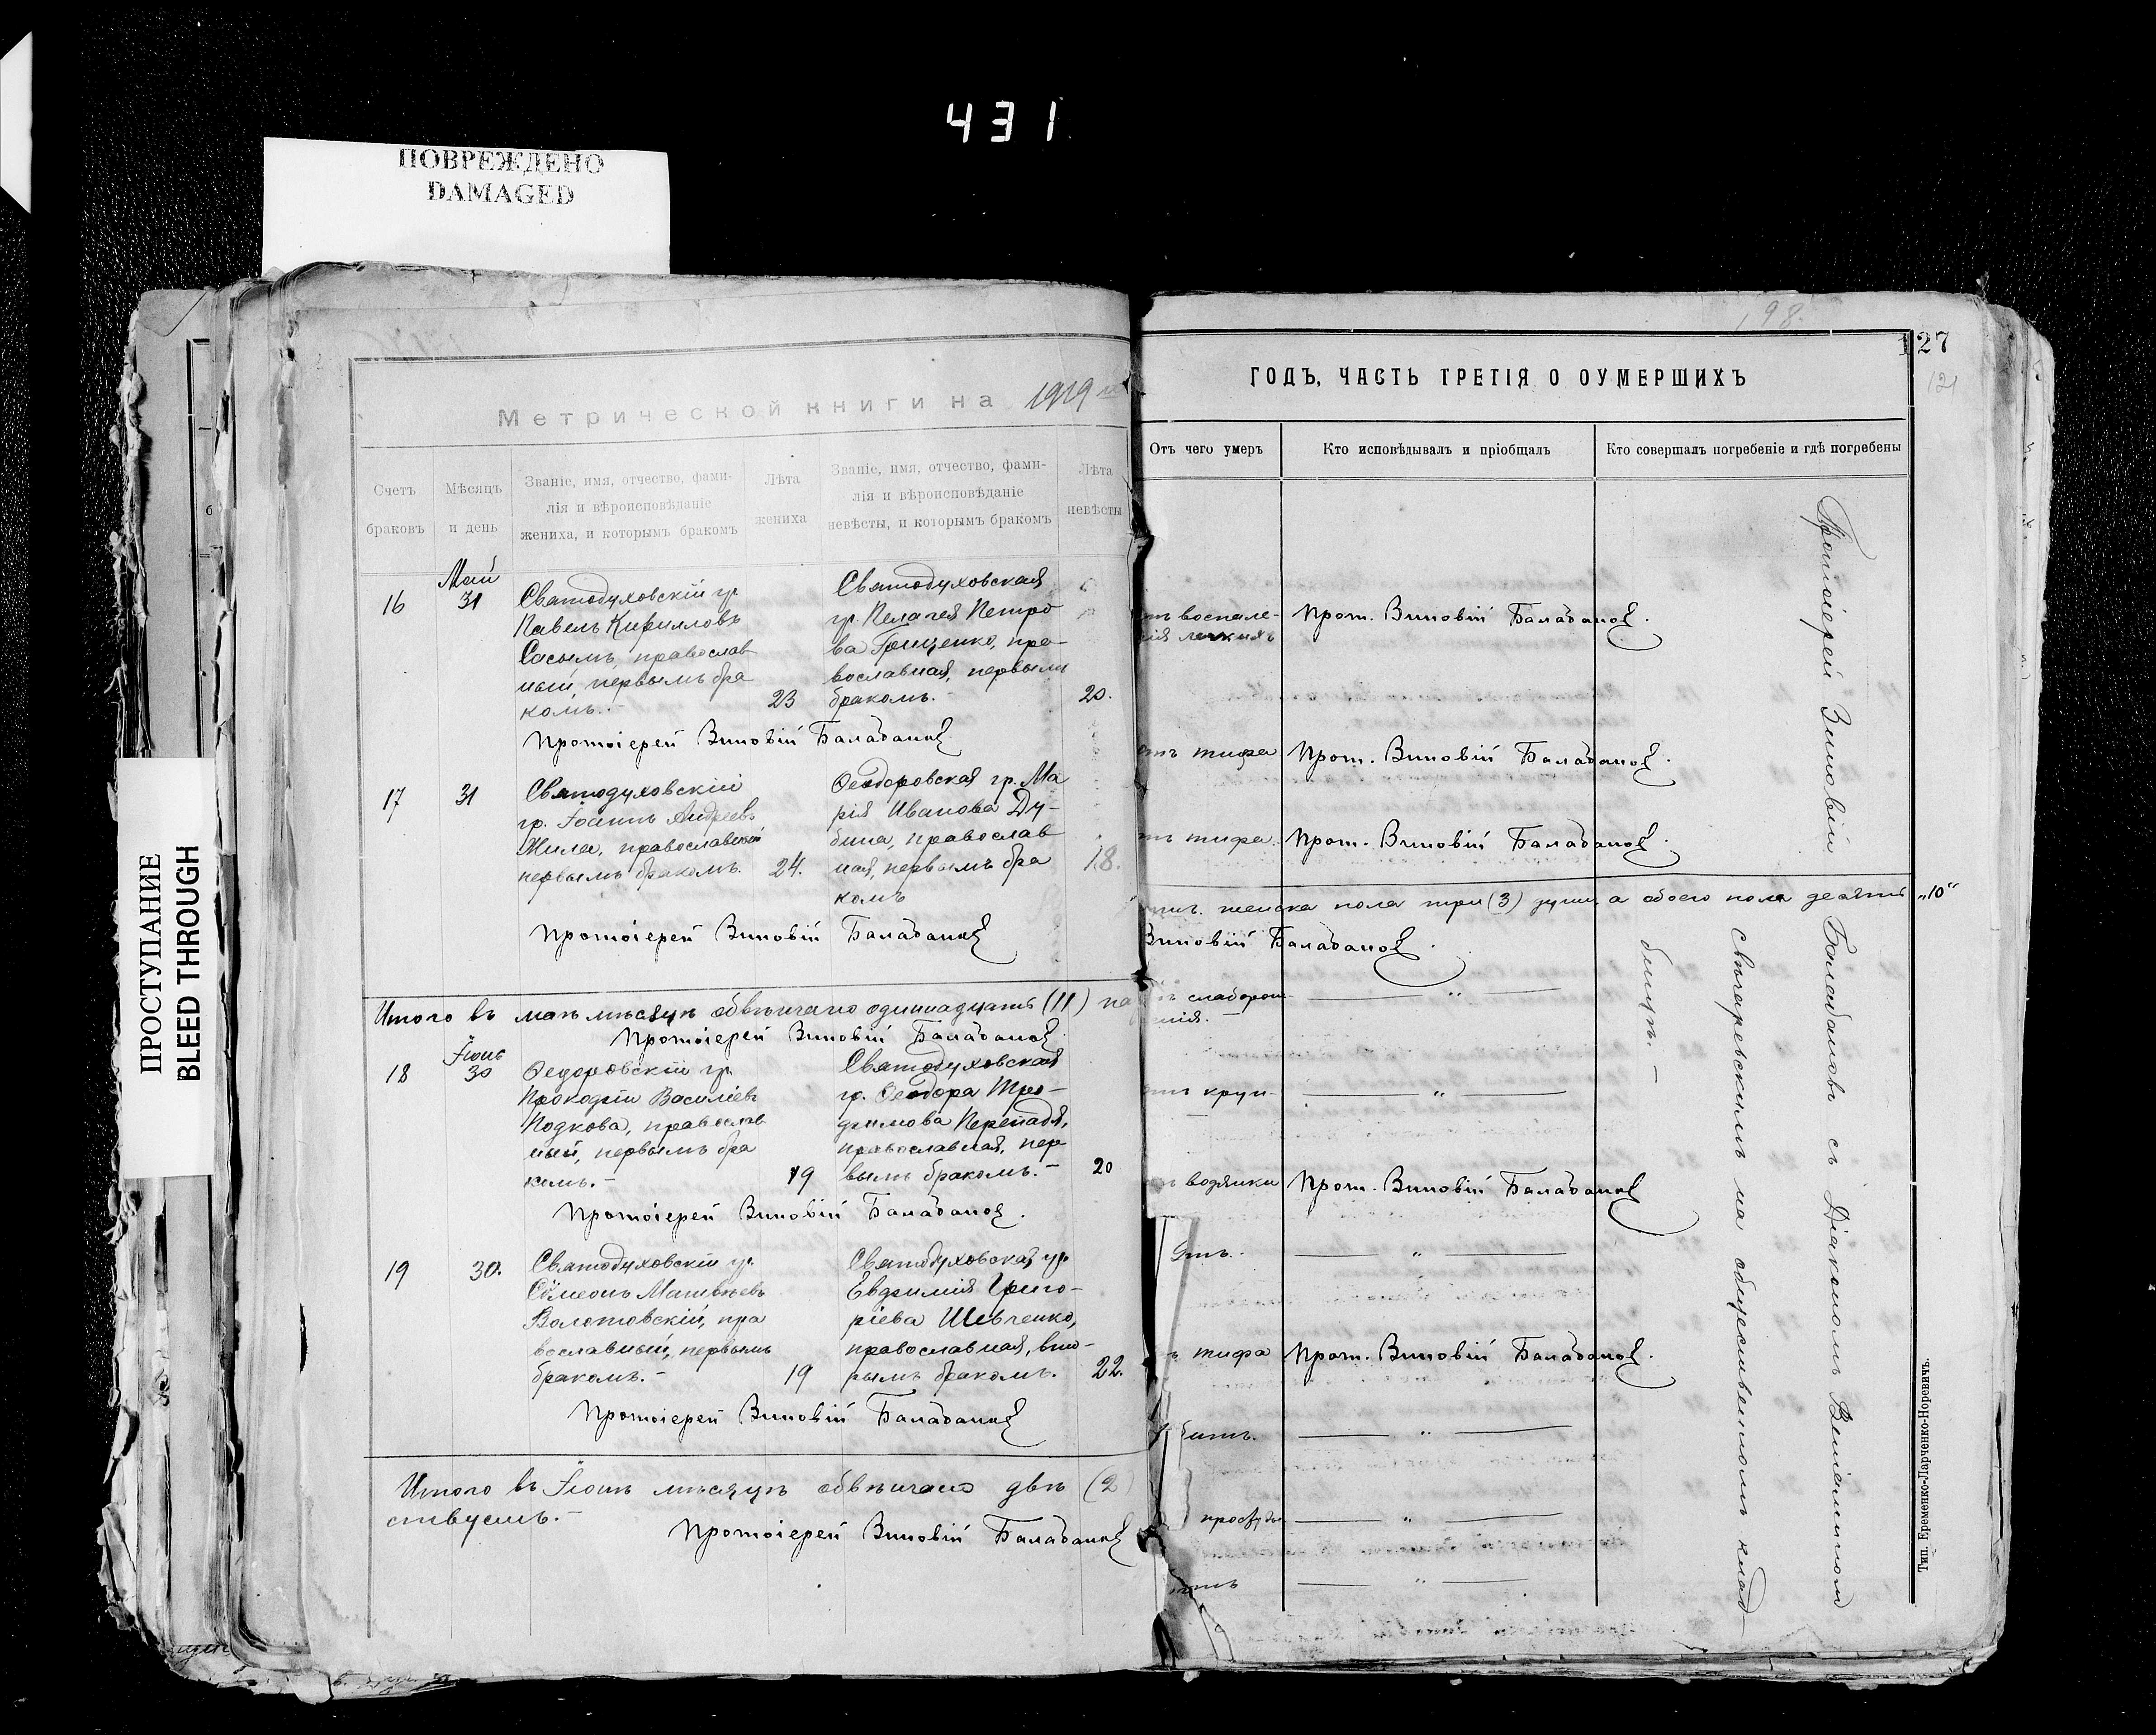 431
ПОВРЕЖДЕНО
DAMAGED
ПРОСТУПАНИЕ
BLEED THROUGH
Метрической книги на 1919
Счетъ браковъ
Мѣсяцъ и день
Званіе, имя, отчество, фами-
лія и вѣроисповѣданіе
жениха, и которымъ бракомъ
Лѣта
жениха
Званіе, имя, отчество, фами-
лія и вѣроисповѣданіе
невѣсты, и которымъ бракомъ
Лѣта
невѣсты
16
Май
31
Святодуховскій гр.
Павелъ Кирилловъ
православ
ный, первымъ бра
комъ.-
23
Святодуховская
гр. Пелагея Петро
ва Грищенко, пра-
вославная, первымъ
бракомъ.-
20.
Протоіерей Зиновій Балабановъ
17
31
Святодуховскій
гр. Іоаннъ Андреевъ
православный
первымъ бракомъ.
24.
Ѳеодоровская гр. Ма
рія Иванова Ду-
бина, православ
ная, первымъ бра
комъ
18.
Протоіерей Зиновій Балабановъ
Итого въ маѣ мѣсяцѣ обвѣнчано одиннадцать (11) па
Протоіерей Зиновій Балабановъ
18
Іюнь
30
Ѳедоровскій гр.
Прокофій Василіевъ
Подкова, православ
ный, первымъ бра
комъ.-
19
Святодуховская
гр. Ѳеодора Тро-
фимова Перепадя,
православная, пер
вымъ бракомъ.-
20
Протоіерей Зиновій Балабановъ.
19
30.
Святодуховскій гр.
Сѷмеонъ Матвѣевъ
Золотовскій, пра
вославный, первымъ
бракомъ.-
19
Святодуховская гр.
Евфимія Григо-
ріева Шевченко,
православная, вто-
рымъ бракомъ.
22.
Протоіерей Зиновій Балабановъ
Итого въ Іюнѣ мѣсяцѣ обвѣнчано двѣ (2)
Протоіерей Зиновій Балабановъ
198.
127
121
ГОДЪ, ЧАСТЬ ТРЕТІЯ О ОУМЕРШИХЪ
Отъ чего умеръ
Кто исповѣдывалъ и пріобщалъ
Кто совершалъ погребеніе и гдѣ погребены
воспале-
нія легкихъ
Прот. Зиновій Балабановъ.
тифа
Прот. Зиновій Балабановъ.
тифа.
Прот. Зиновій Балабановъ.
женска пола три (3) души а обоего пола десять „10“
Зиновій Балабановъ.
слаборож-
— „ —
круп-
— „ —
водянки
Прот. Зиновій Балабановъ
— „ —
тифа
Прот. Зиновій Балабановъ.
— „ —
простуды
— „ —
— „ —
Протоіерей Зиновій Балабановъ съ Діакономъ
на общественномъ клад-
бищѣ.-
Тип. Еременко-Ларченко-Норевичъ.